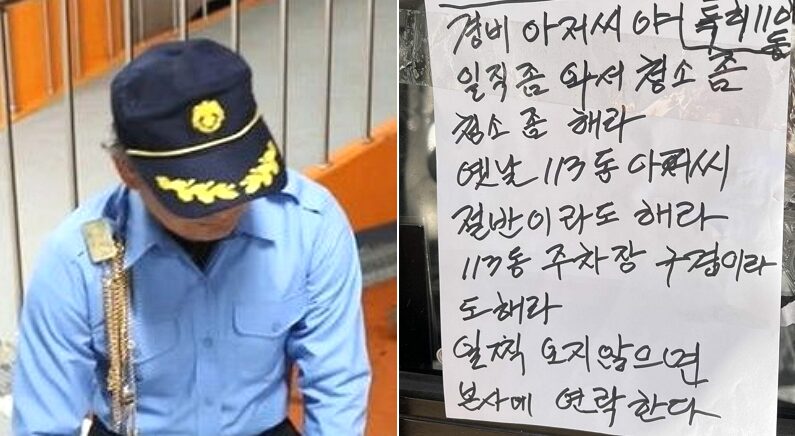 경비 아저씨 야! 특히 110동
일직좀 와서 청소 좀
청소 좀 해라
옛날 113동 아저씨
절반이라도 해라
113동 주차장 구경이라
도해라
일찍 오지않으면
본사에 연락한다